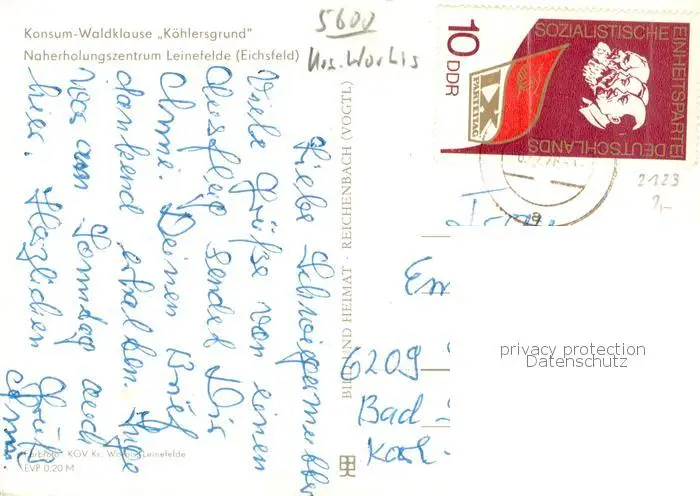 Konsum-Waldklause „Köhlersgrund"
Naherholungszentrum Leinefelde (Eichsfeld)
5600
Krs. Worbis
10
DDR
SOZIALISTISCHE
EINHEITSPARTEI
DEUTSCHLANDS
IX
PARTEITAG
2123
Liebe Schwiegermutter
Viele Grüße von einen
Ausflug sendet Dir
Deinen Brief
dankend erhalten.
War am Sonntag auch
hier. Herzlichen Gruß
BILD UND HEIMAT · REICHENBACH (VOGTL)
6209
Bad
Farbfoto: KGV Kr. Worbis, Leinefelde
EVP 0,20 M
privacy protection
Datenschutz